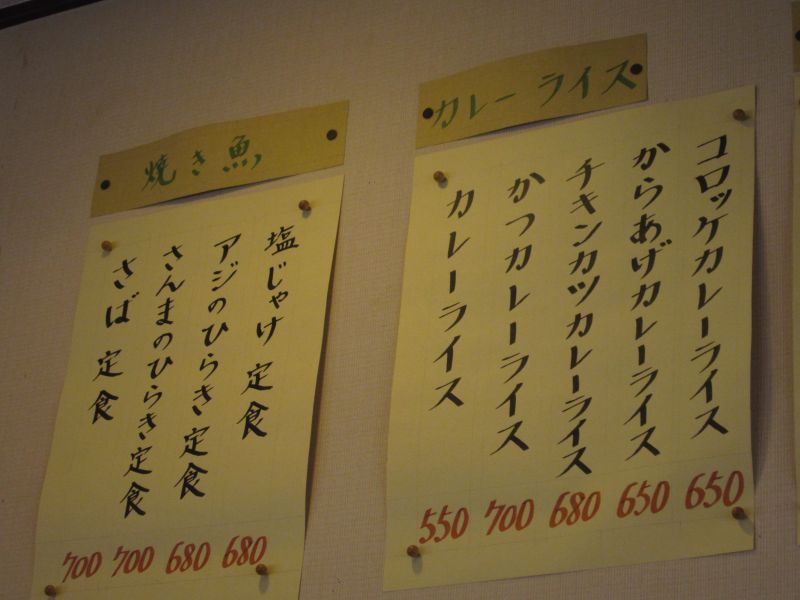 焼き魚
塩じゃけ 定食
アジのひらき定食
さんまのひらき定食
さば 定食
700 700 680 680
カレーライス
コロッケカレーライス
からあげカレーライス
チキンカツカレーライス
かつカレーライス
カレーライス
550 700 680 650 650